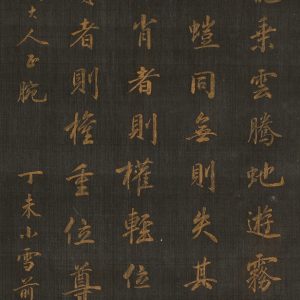 乘雲騰虵遊霧
螘同矣則失其
肖者則權輕位
者則權重位尊
大人正腕
丁未小雪前